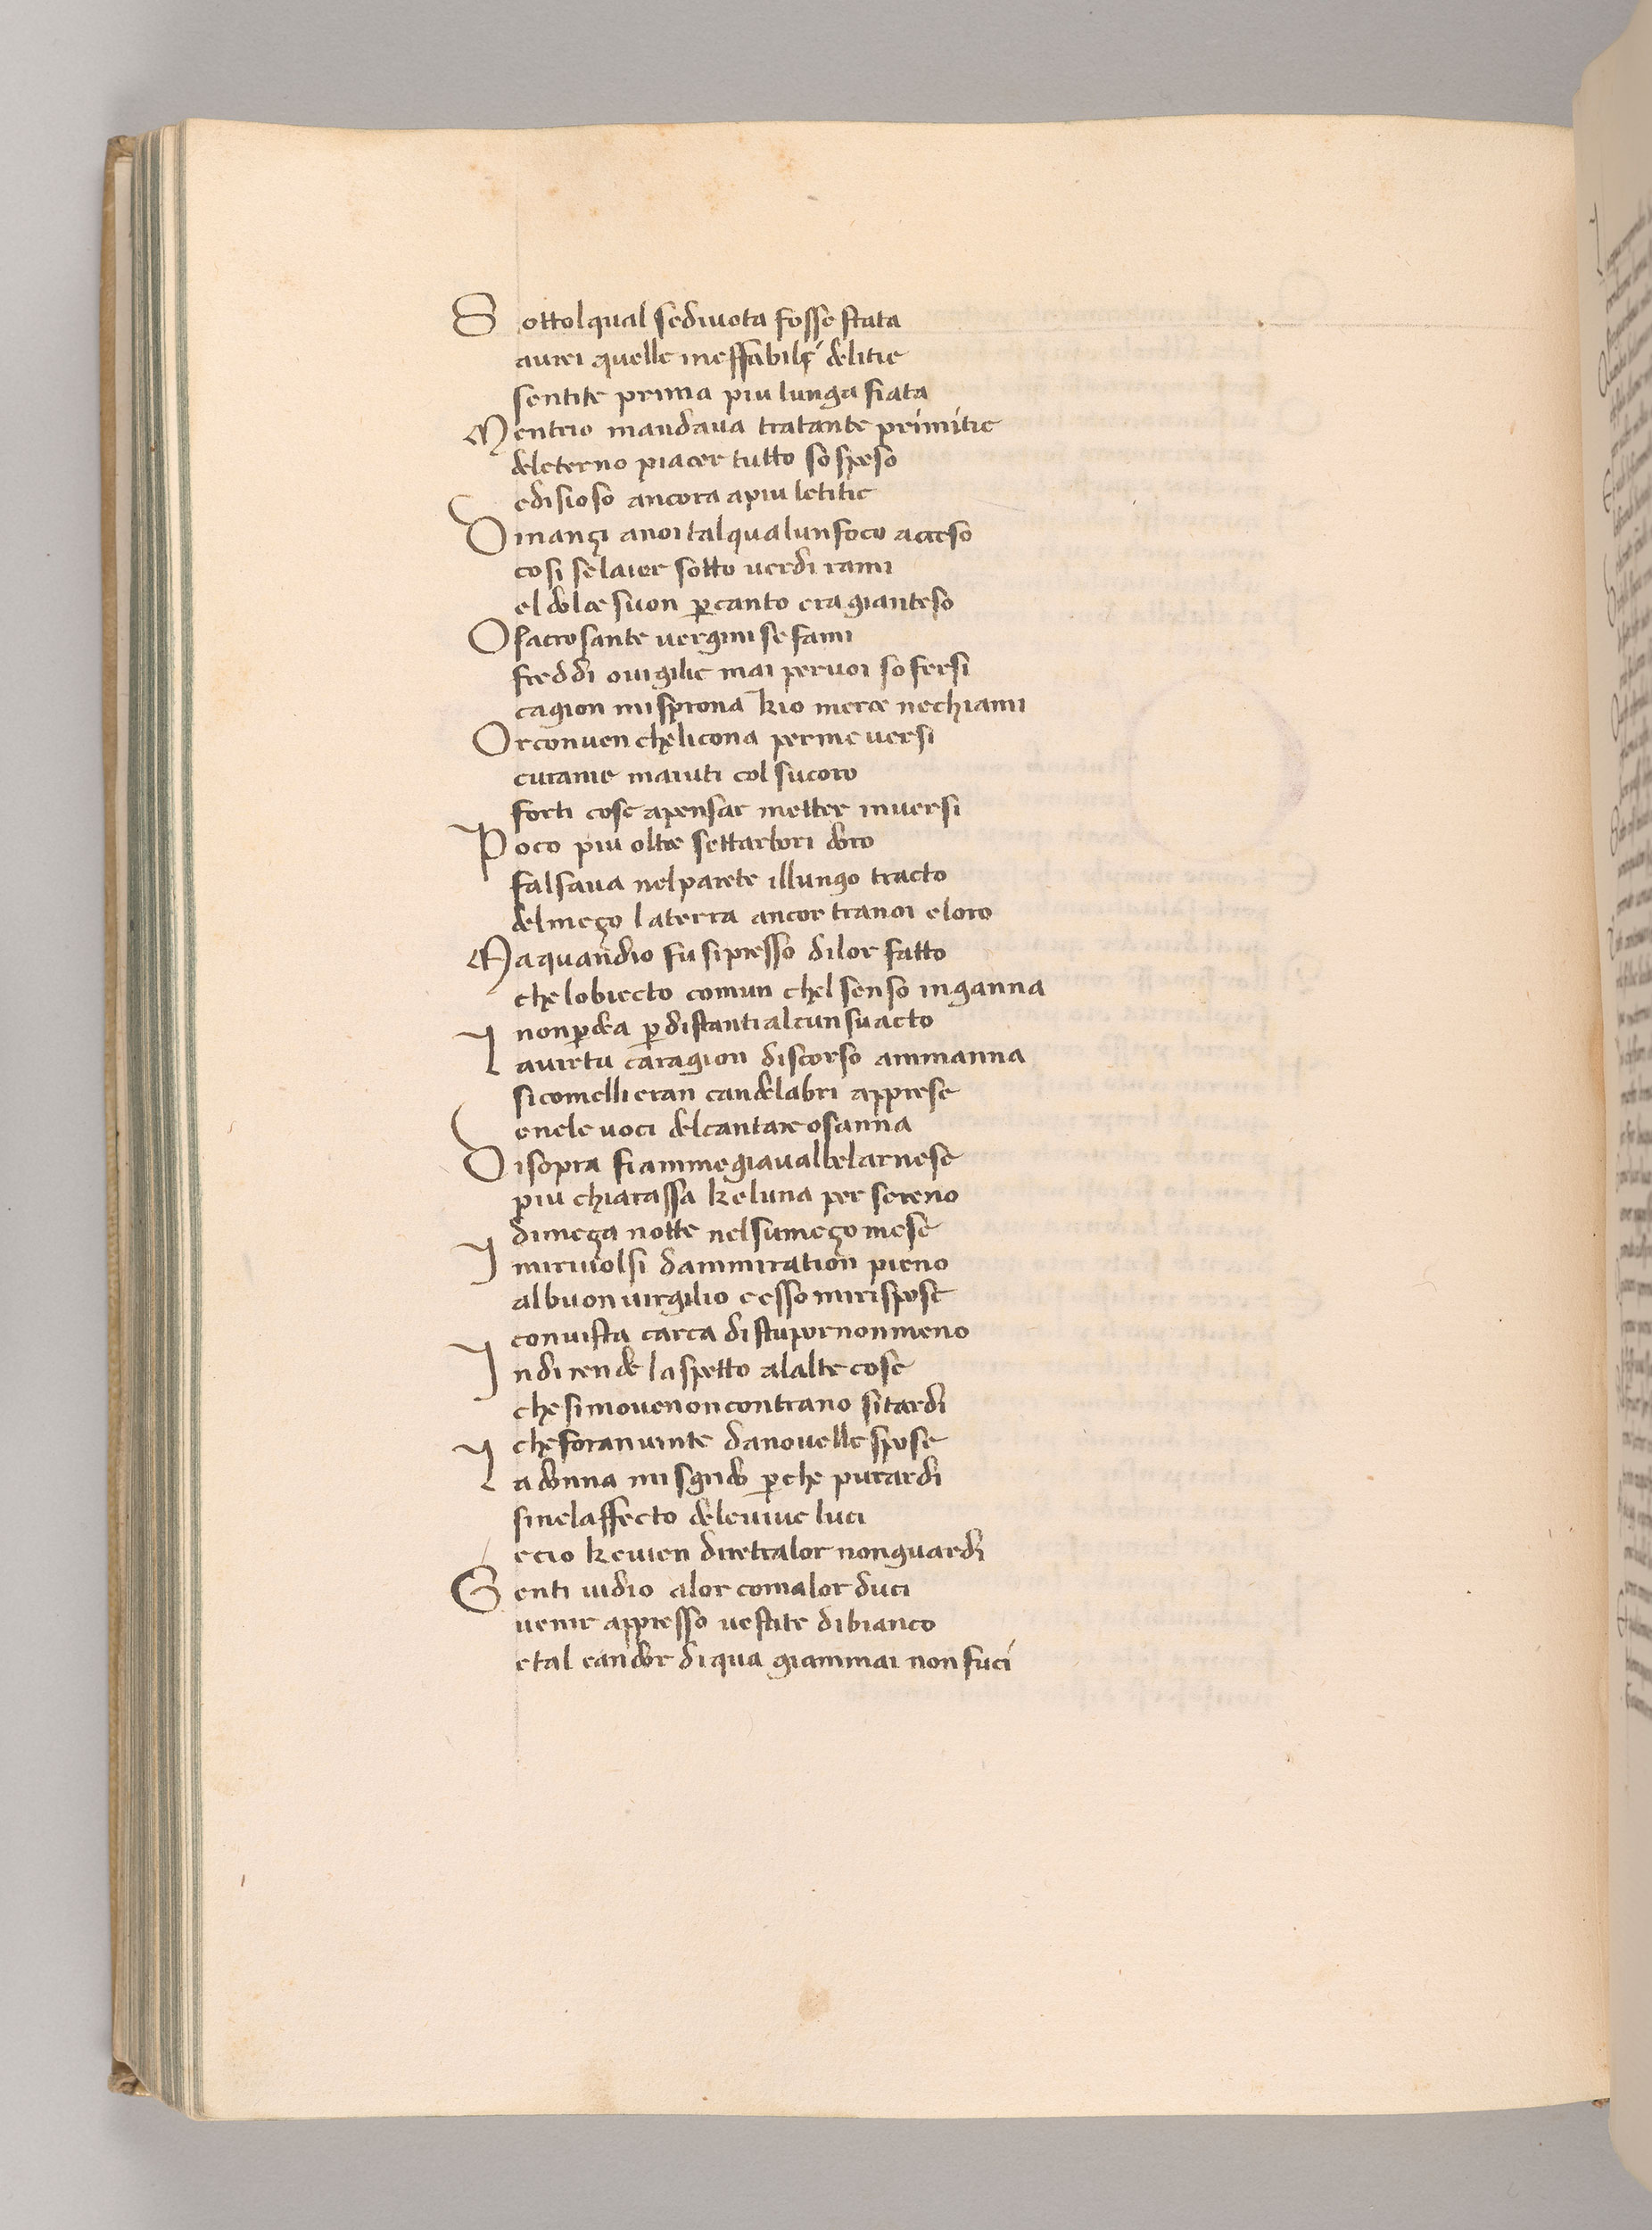 Sottolqual sediuota fosse stata
aurei quelle ineffabili delitie
sentite prima piu lunga fiata
Mentrio mandaua tratante primitie
deleterno piacer tutto sospeso
edisioso ancora apiu letitie
Dinançi anoi talqualunfoco acceso
cosi selaier sotto uerdi rami
el dolce suon ꝑcanto era gianteso
Osacrosante uergini se fami
freddi ouigilie mai peruoi sofersi
cagion misprona kio merce nechiami
Orconuen chelicona perme uersi
curanie maiuti col sucoro
forti cose apensar metter inuersi
Poco piu oltre settarbori doro
falsaua nelparete illungo tracto
delmeço laterra ancor tranoi eloro
Maquandio fu sipresso dilor fatto
chelobiecto comun chel senso inganna
nonꝑdea ꝑdistantialcun suacto
Lauirtu caragion discorso ammanna
sicomelli eran candelabri apprese
enele uoci delcantare osanna
Disopra fiammegiaualbelarnese
piu chiarassa keluna per sereno
dimeça notte nelsumeço mese
Imiriuolsi dammiration pieno
albuon uirgilio eesso mirispose
conuista carca distupornonmeno
Indi rende laspetto alalte cose
chesimouenoncontrano sitardi
cheforanuinte danouelle spose
Ladonna misgrido ꝑche purardi
sinelaffecto deleuiue luci
ecio keuien diretralor nonguardi
Genti uidio alor comalor duci
uenir appresso uestite dibianco
etal candor diqua giammai nonfuci